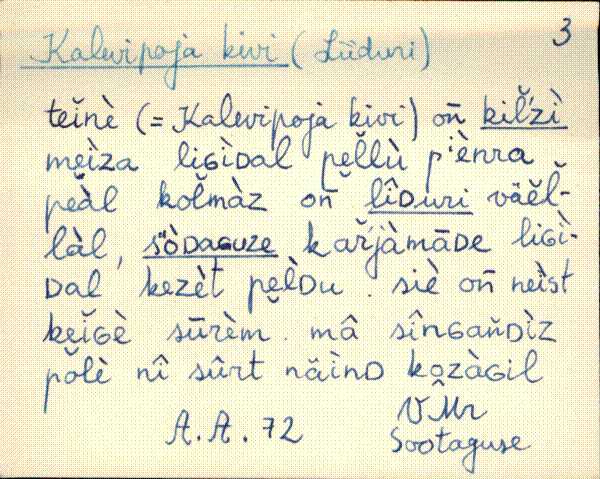 3
Kalevipoja kivi (Liiduri)
teĭnè (= Kalevipoja kivi) on̄ kiľ̆zì
meìza liGìDal pel̆lù pi̯ènra
peàl kol̆màz on̄ lîDuri väĕl̆-
làl, sö̀DaGuze kar̆jàmāDe liGì-
Dal kezèt pe̬l̀Du. siè on̄ neìst
ke̬ĭGè sūrèm. mâ sînGan̆Dìz
po̬lè nî sûrt näìnD kozàGil
A.A. 72
VMr
Sootaguse